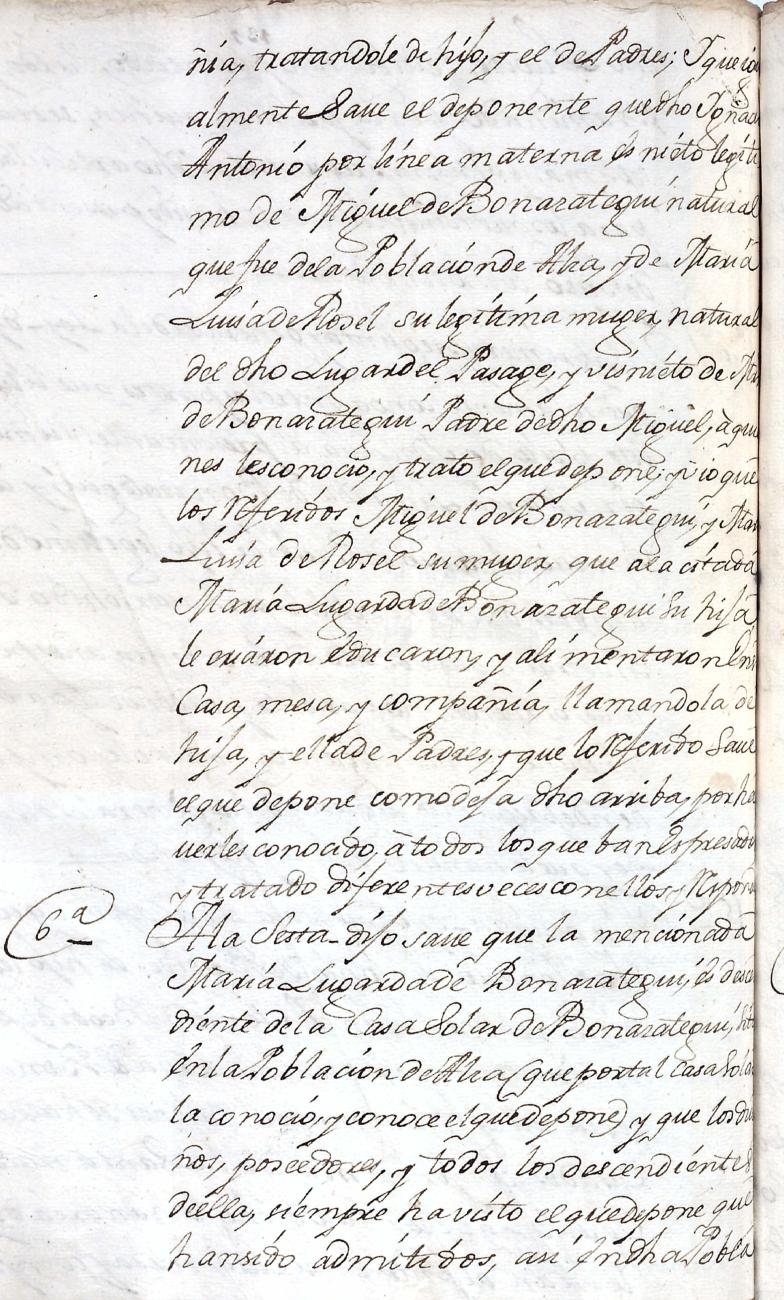 ñia, tratandole de hijo, y el de Padres; Y que
almente Save el deponente que dho Ygnac
Antonio por linea materna és nieto legiti
mo de Miguel de Bonazategui natural
que fue de la Poblacion de Alza, y de Maria
Luisa de Rosel su legitima muger, natural
del dho Lugar del Pasage, y visnieto de
de Bonazategui Padre de dho Miguel, à quie
nes les conocio, y trato el que depone; y vio que
los Referidos Miguel de Bonazategui, y Mar
Luisa de Rosel su muger, que a la citada
Maria Lugarda de Bonazategui su hija
le criáron educaron, y alimentaron En
Casa, mesa, y compañia, llamandola de
hija, y ella de Padres, y que lo Referido Save
el que depone como deja dho arriba, por ha
verles conocido, à todos los que ban Espresado
y tratado diferentes veces con ellos y Respon
6ª
A la Sesta dijo save que la mencionada
Maria Lugarda de Bonazategui, és desce
diente de la Casa Solar de Bonazategui,
En la Poblacion de Alza (que por tal casa Solar
la conoció, y conoce el que depone) y que los du
ños, poseedores, y todos los descendientes
de ella, siempre ha visto el que depone que
han sido admitidos, asi En dha Pobla